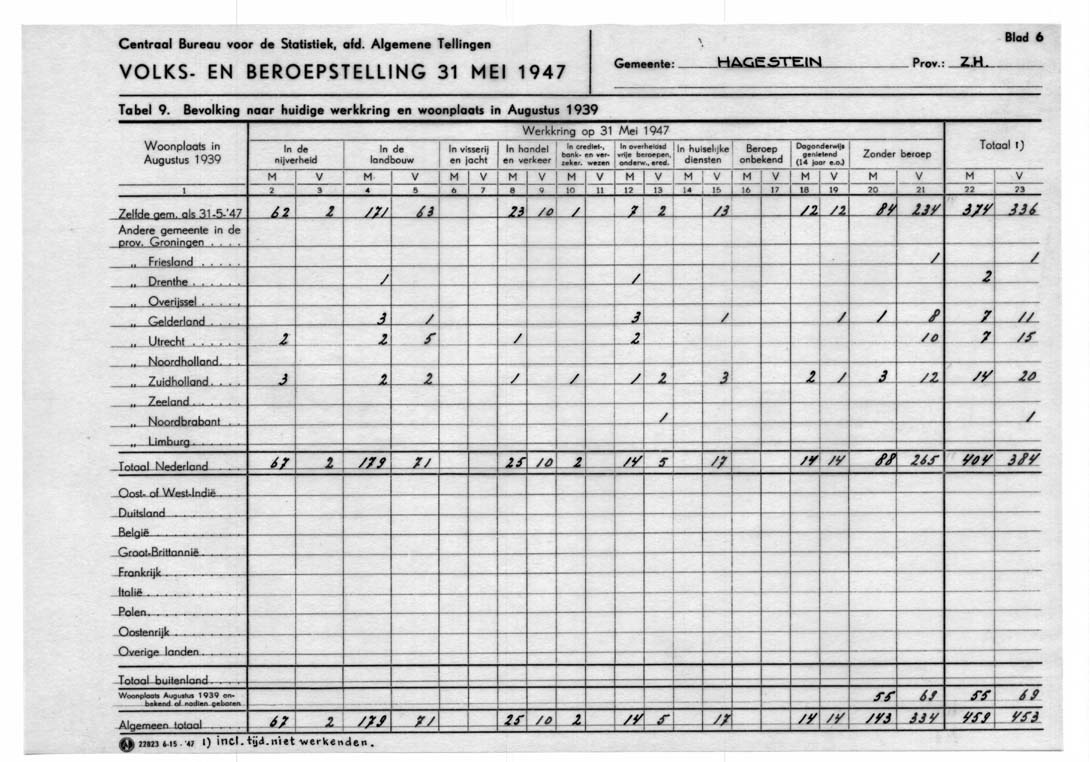 Centraal Bureau voor de Statistiek, afd. Algemene Tellingen
Blad 6
VOLKS- EN BEROEPSTELLING 31 MEI 1947
Gemeente: HAGESTEIN Prov.: Z.H.
Tabel 9. Bevolking naar huidige werkkring en woonplaats in Augustus 1939
Woonplaats in Augustus 1939
Werkkring op 31 Mei 1947
In de nijverheid
In de landbouw
In visserij en jacht
In handel en verkeer
In crediet-, bank- en verzeker. wezen
In overheidsd vrije beroepen, onderw., ered.
In huiselijke diensten
Beroep onbekend
Dagonderwijs genietend (14 jaar e.o.)
Zonder beroep
Totaal 1)
M V M V M V M V M V M V M V M V M V M V M V
1 2 3 4 5 6 7 8 9 10 11 12 13 14 15 16 17 18 19 20 21 22 23
Zelfde gem. als 31-5-'47 62 2 171 63 23 10 1 7 2 13 12 12 84 234 374 336
Andere gemeente in de
prov. Groningen . . . .
„ Friesland . . . . . 1 1
„ Drenthe . . . . . . 1 1 2
„ Overijssel . . . . .
„ Gelderland . . . . 3 1 3 1 1 1 8 7 11
„ Utrecht . . . . . . 2 2 5 1 2 10 7 15
„ Noordholland. . . .
„ Zuidholland. . . . 3 2 2 1 1 1 2 3 2 1 3 12 14 20
„ Zeeland . . . . . .
„ Noordbrabant . . 1 1
„ Limburg . . . . . .
Totaal Nederland . . . 67 2 179 71 25 10 2 14 5 17 14 14 88 265 404 384
Oost- of West-Indië . . .
Duitsland . . . . . . . .
België . . . . . . . . .
Groot-Brittannië . . . .
Frankrijk . . . . . . . .
Italië . . . . . . . . .
Polen. . . . . . . . . .
Oostenrijk . . . . . . .
Overige landen. . . . .
Totaal buitenland . . . .
Woonplaats Augustus 1939 on-
bekend of nadien geboren 55 69 55 69
Algemeen totaal . . . . 67 2 179 71 25 10 2 14 5 17 14 14 143 334 459 453
22823 6-15 - '47 1) incl. tijd. niet werkenden.